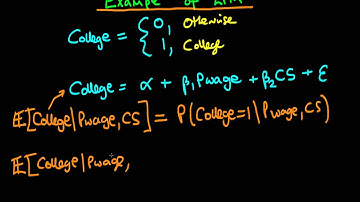 Example of LPM
College = { 0, Otherwise
1, College
College = α + β₁Pwage + β₂CS + ε
E[College|Pwage, CS] = P(College=1|Pwage, CS)
E[College|Pwage,